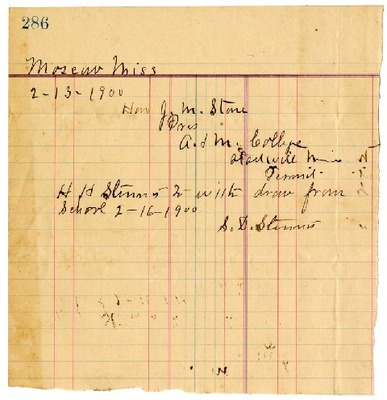 286
Moscow Miss
2-13-1900
Hon J. M. Stone
Pres
A. & M. College
Starkville Miss
Permit
H H Stennis to with draw from
School 2-16-1900
S. D. Stennis